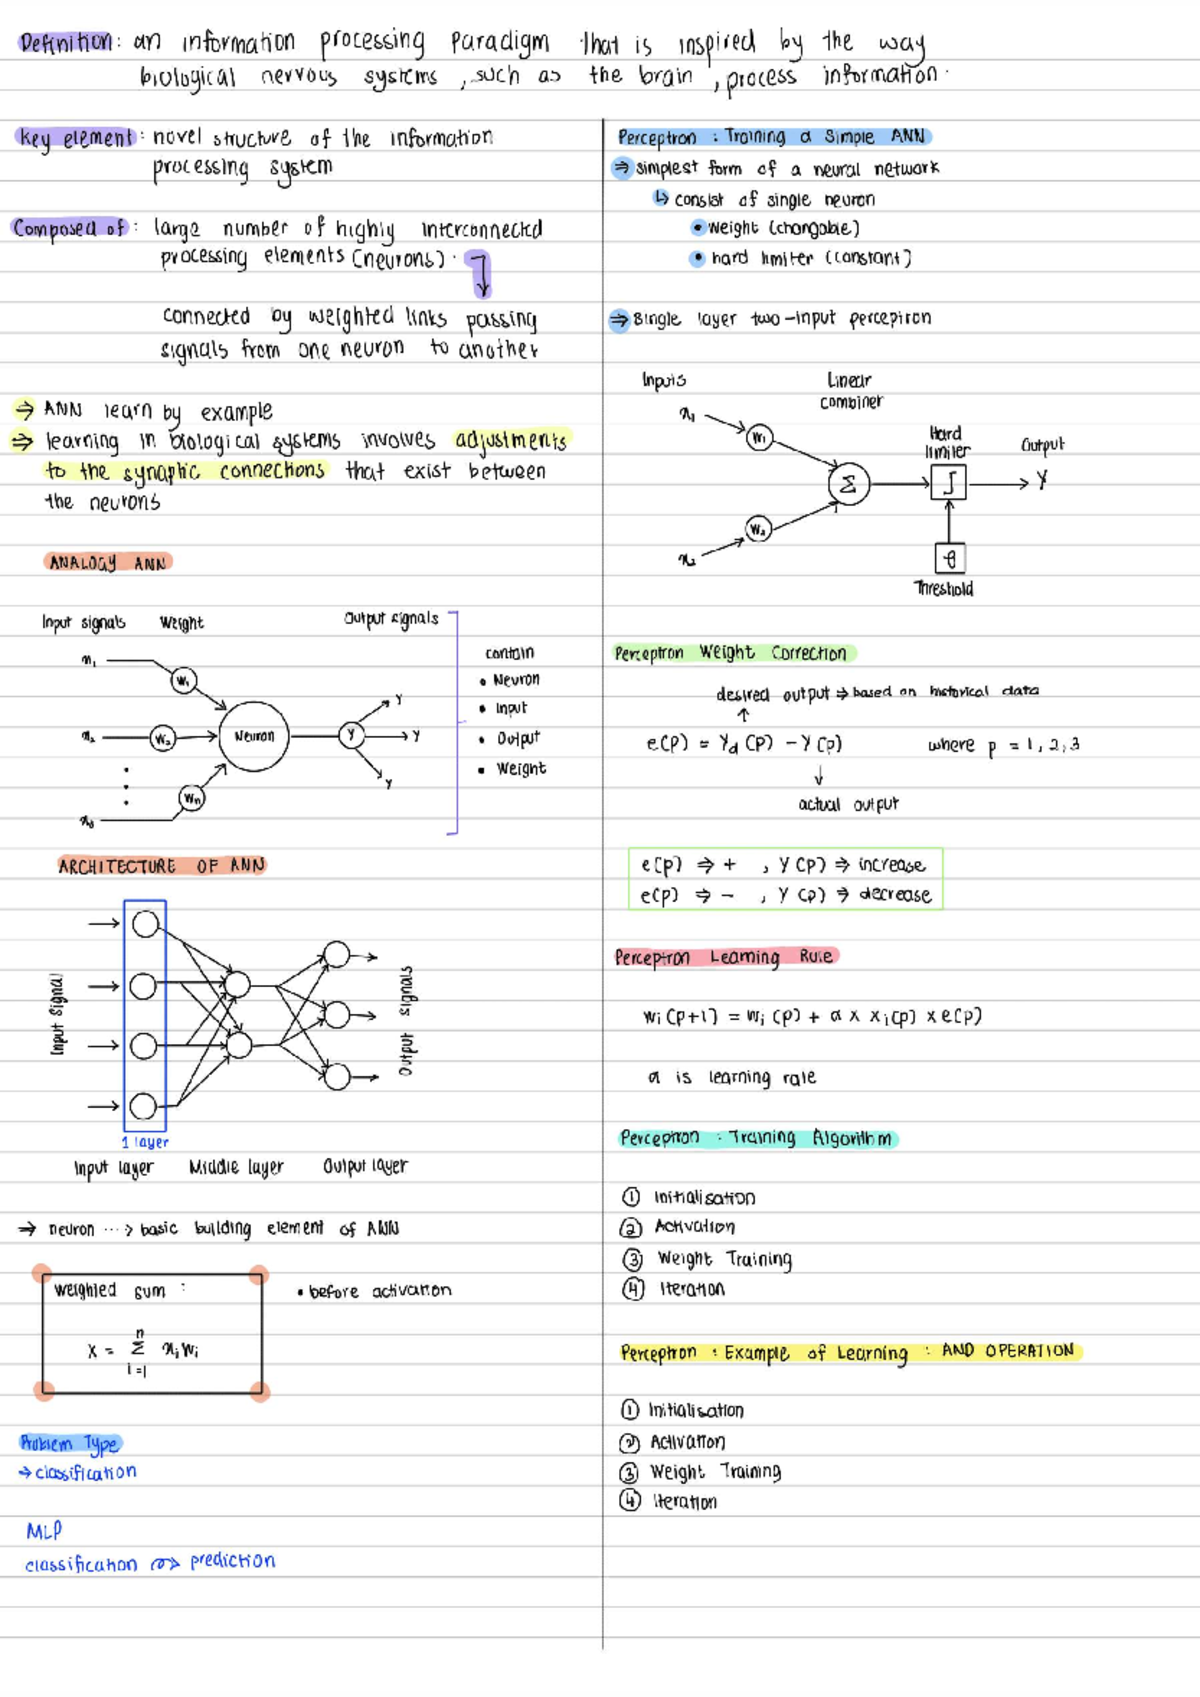 Definition: an information processing Paradigm that is inspired by the way
biological nervous systems, such as the brain, process information.
key element: novel structure of the information
processing system
Composed of: large number of highly interconnected
processing elements (neurons).
connected by weighted links passing
signals from one neuron to another
⇒ ANN learn by example
⇒ learning in biological systems involves adjustments
to the synaptic connections that exist between
the neurons
ANALOGY ANN
Input signals Weight Output signals
x₁
W₁
x₂ W₂ Neuron Y
Y
Y
Y
Wn
contain
• Neuron
• Input
• Output
• Weight
ARCHITECTURE OF ANN
Input Signal
Output signals
1 layer
Input layer Middle layer Output layer
→ neuron ···> basic building element of ANN
weighted sum :
X = n Σ i=1 xᵢwᵢ
• before activation
Problem Type
→ classification
MLP
classification prediction
Perceptron : Training a Simple ANN
⇒ simplest form of a neural network
↳ consist of single neuron
• weight (changable)
• hard limiter (constant)
⇒ single layer two-input perceptron
Inputs Linear
combiner
x₁
W₁
Hard
limiter
Output
Σ
Y
W₂
x₂
θ
Threshold
Perceptron Weight Correction
desired output ⇒ based on historical data
↑
e(p) = Yd (p) - Y(p) where p = 1, 2, 3
↓
actual output
e(p) ⇒ + , Y(p) ⇒ increase
e(p) ⇒ - , Y(p) ⇒ decrease
Perceptron Learning Rule
wi (p+1) = wi (p) + α x xi(p) x e(p)
α is learning rate
Perceptron : Training Algorithm
① Initialisation
② Activation
③ Weight Training
④ Iteration
Perceptron : Example of Learning : AND OPERATION
① Initialisation
② Activation
③ Weight Training
④ Iteration